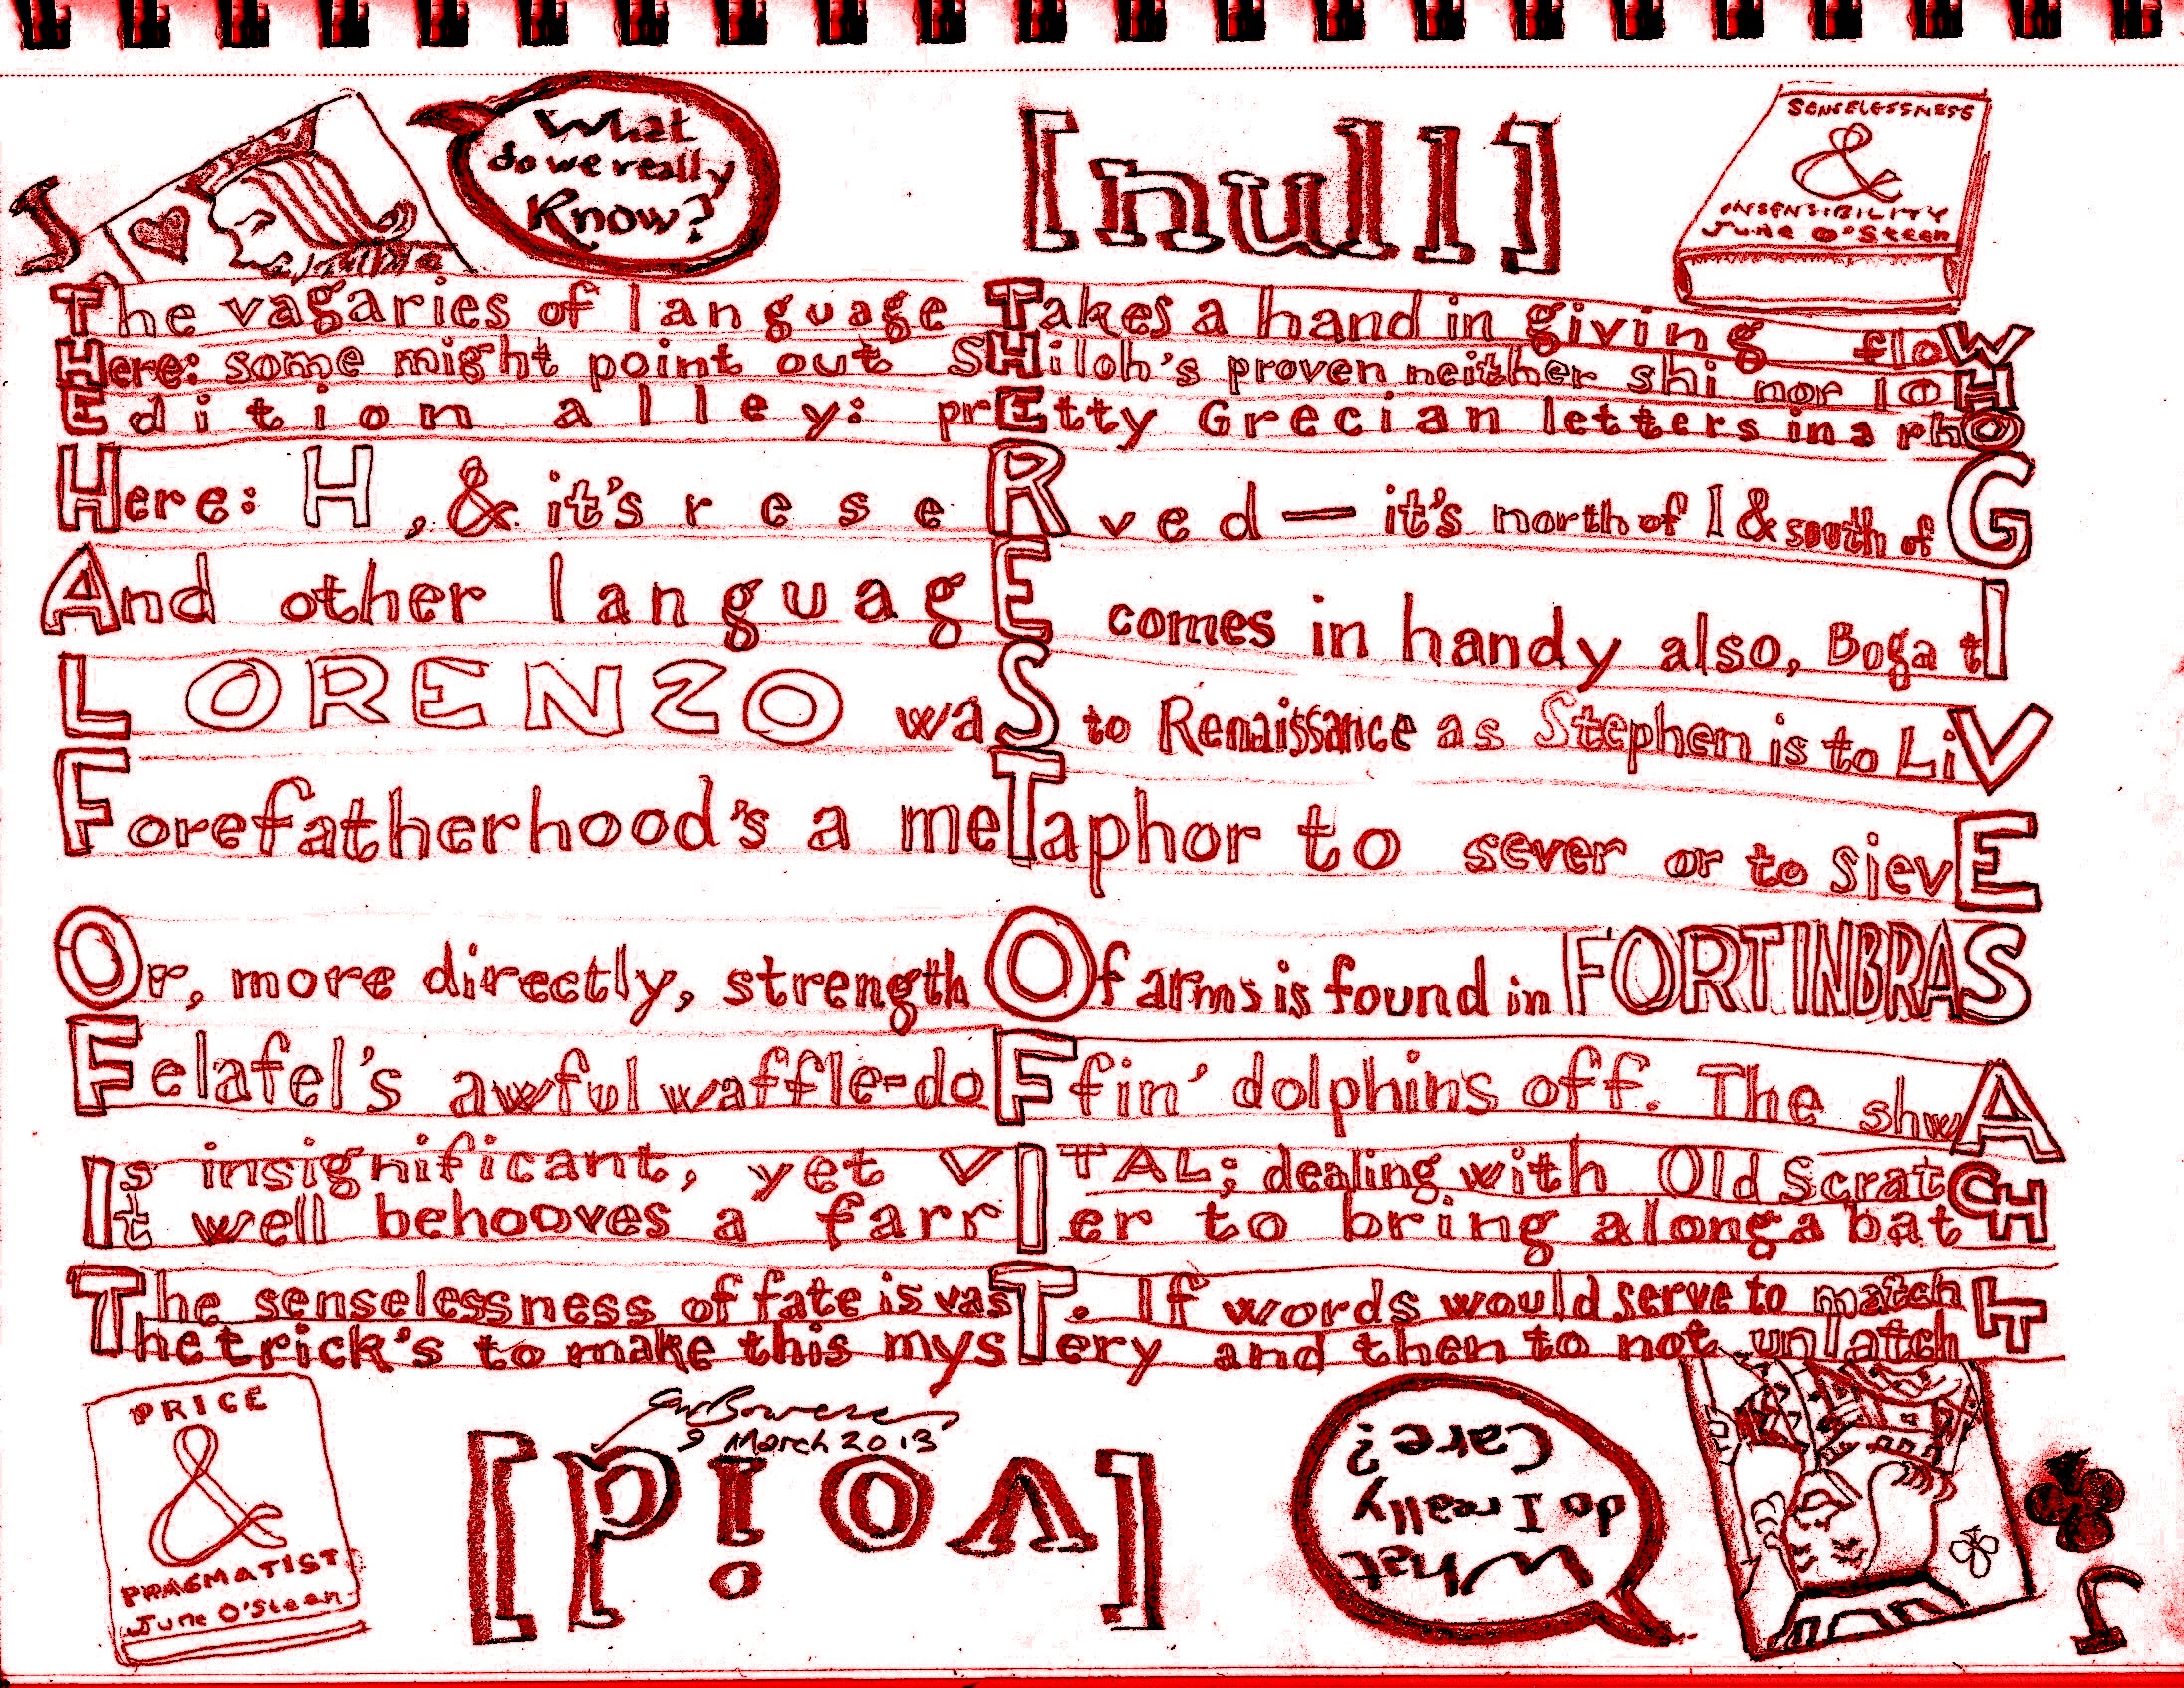 What
do we really
Know?
[null]
SENSELESSNESS
&
INSENSIBILITY
June O'Steen
J
The vagaries of language Takes a hand in giving floW
Here: some might point out SHiloh's proven neither shi nor loH
Edition alley: prEtty Grecian letters in a rhO
Here: H, & it's reseRved — it's north of I & south of G
And other languagE comes in handy also, Boga tI
LORENZO waS to Renaissance as Stephen is to LiV
Forefatherhood's a meTaphor to sever or to sievE
Or, more directly, strength Of arms is found in FORTINBRAS
Felafel's awful waffle-doFfin' dolphins off. The shwA
Is insignificant, yet VITAL; dealing with Old ScratCH
It well behooves a farrIer to bring along a batCH
The senselessness of fate is vasT. If words would serve to match IT
The trick's to make this mysTery and then to not unlatch IT
PRICE
&
PRAGMATIST
June O'Steen
9 March 2013
[void]
What
do I really
Care?
J